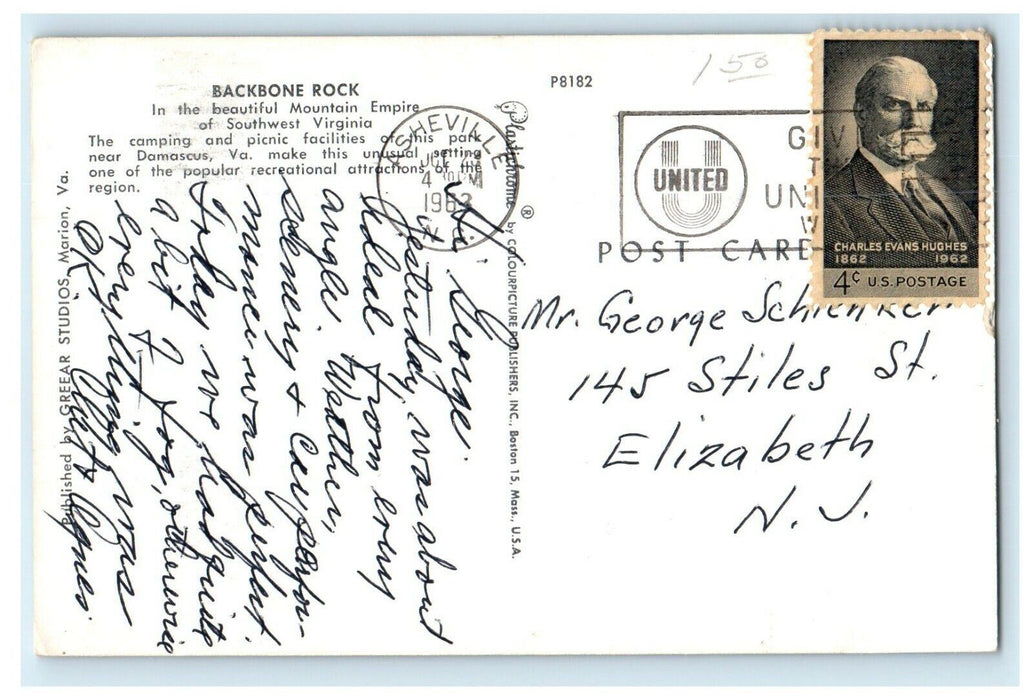 BACKBONE ROCK
In the beautiful Mountain Empire
of Southwest Virginia
The camping and picnic facilities of this park
near Damascus, Va. make this unusual setting
one of the popular recreational attractions of the
region.
Published by GREEAR STUDIOS, Marion, Va.
Hi George.
Yesterday, was about
ideal from every
angle. Weather,
scenery & Car perfor-
mance was perfect.
Today we had quite
a bit of fog, otherwise
everything was
OK.
Agnes.
Plastichrome ® by COLOURPICTURE PUBLISHERS, INC., Boston 15, Mass., U.S.A.
P8182
150
ASHEVILLE
4 PM
1962
UNITED
GIV
UNI
W
POST CARD
CHARLES EVANS HUGHES
1862 1962
4c U.S. POSTAGE
Mr. George Schlenker
145 Stiles St.
Elizabeth
N. J.